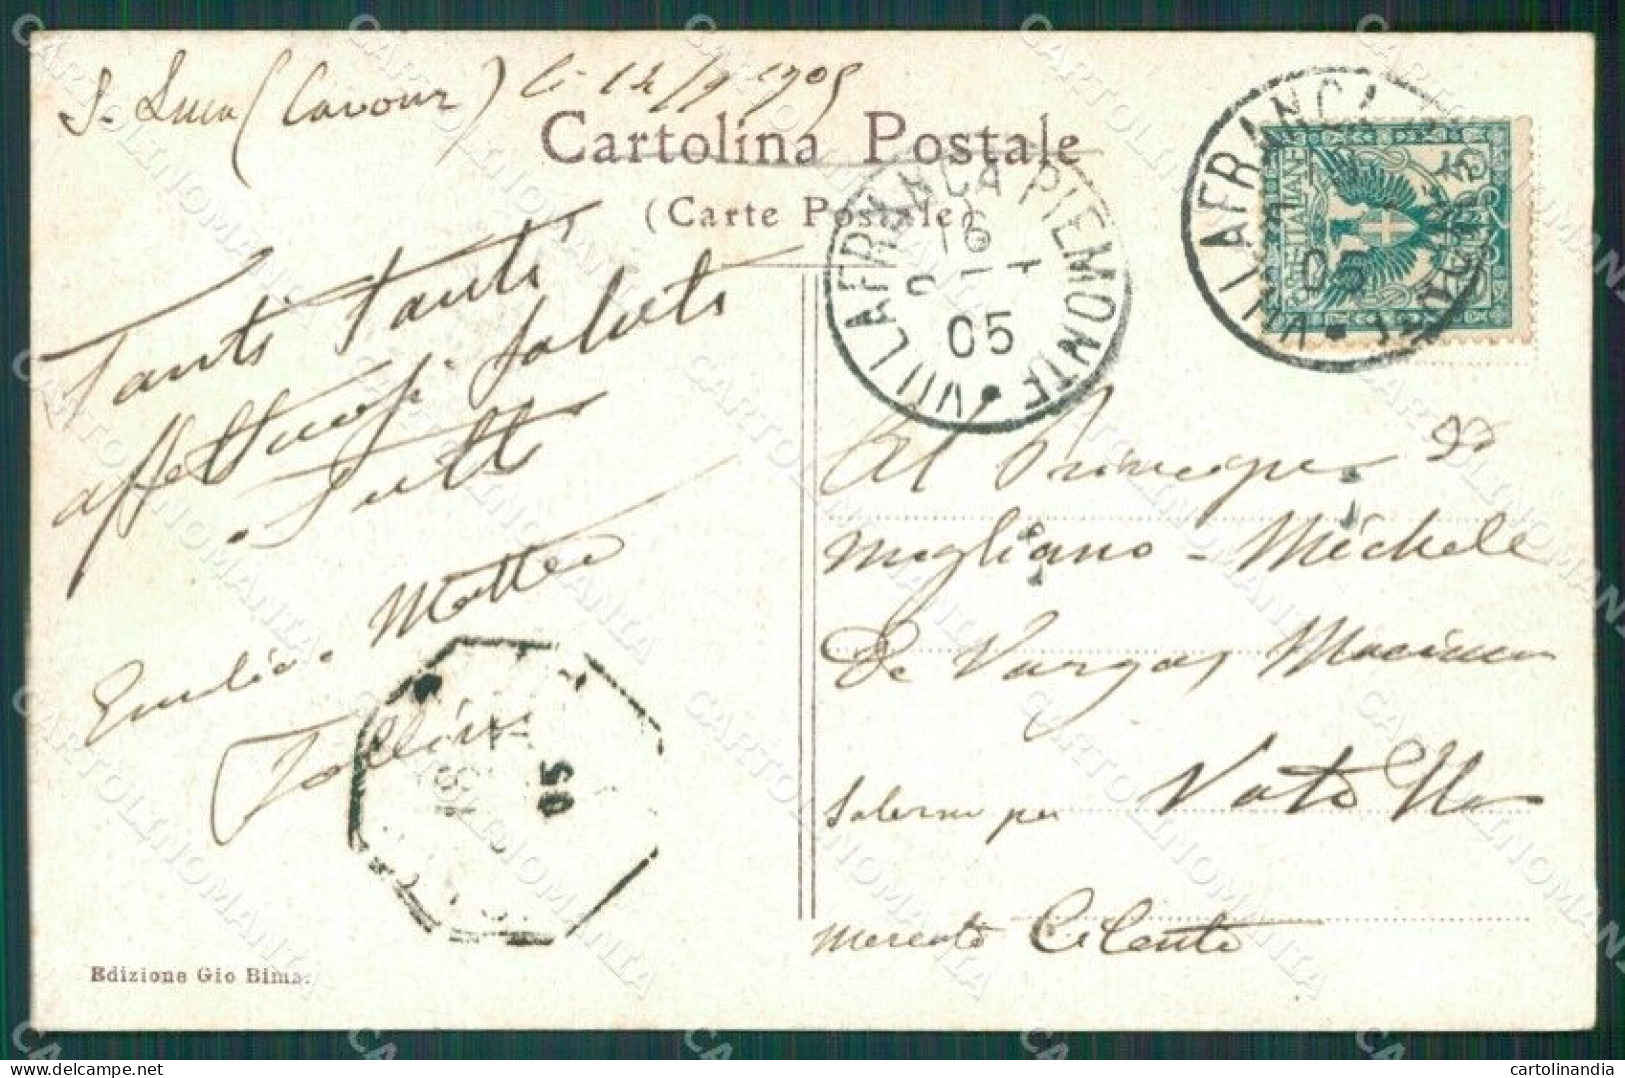 S. Luca (Cavour) li 14/9 1905
Cartolina Postale
(Carte Postale)
VILLAFRANCA PIEMONTE
16
05
VILLAFRANCA
05
Tanti tanti
affettuosi saluti
Tutti
Emilia - Matteo
Al Principe di
Migliano - Michele
De Vargas Macciucca
Salerno per Vatolla
Mercato Cilento
05
Edizione Gio Bima.
cartolinandia